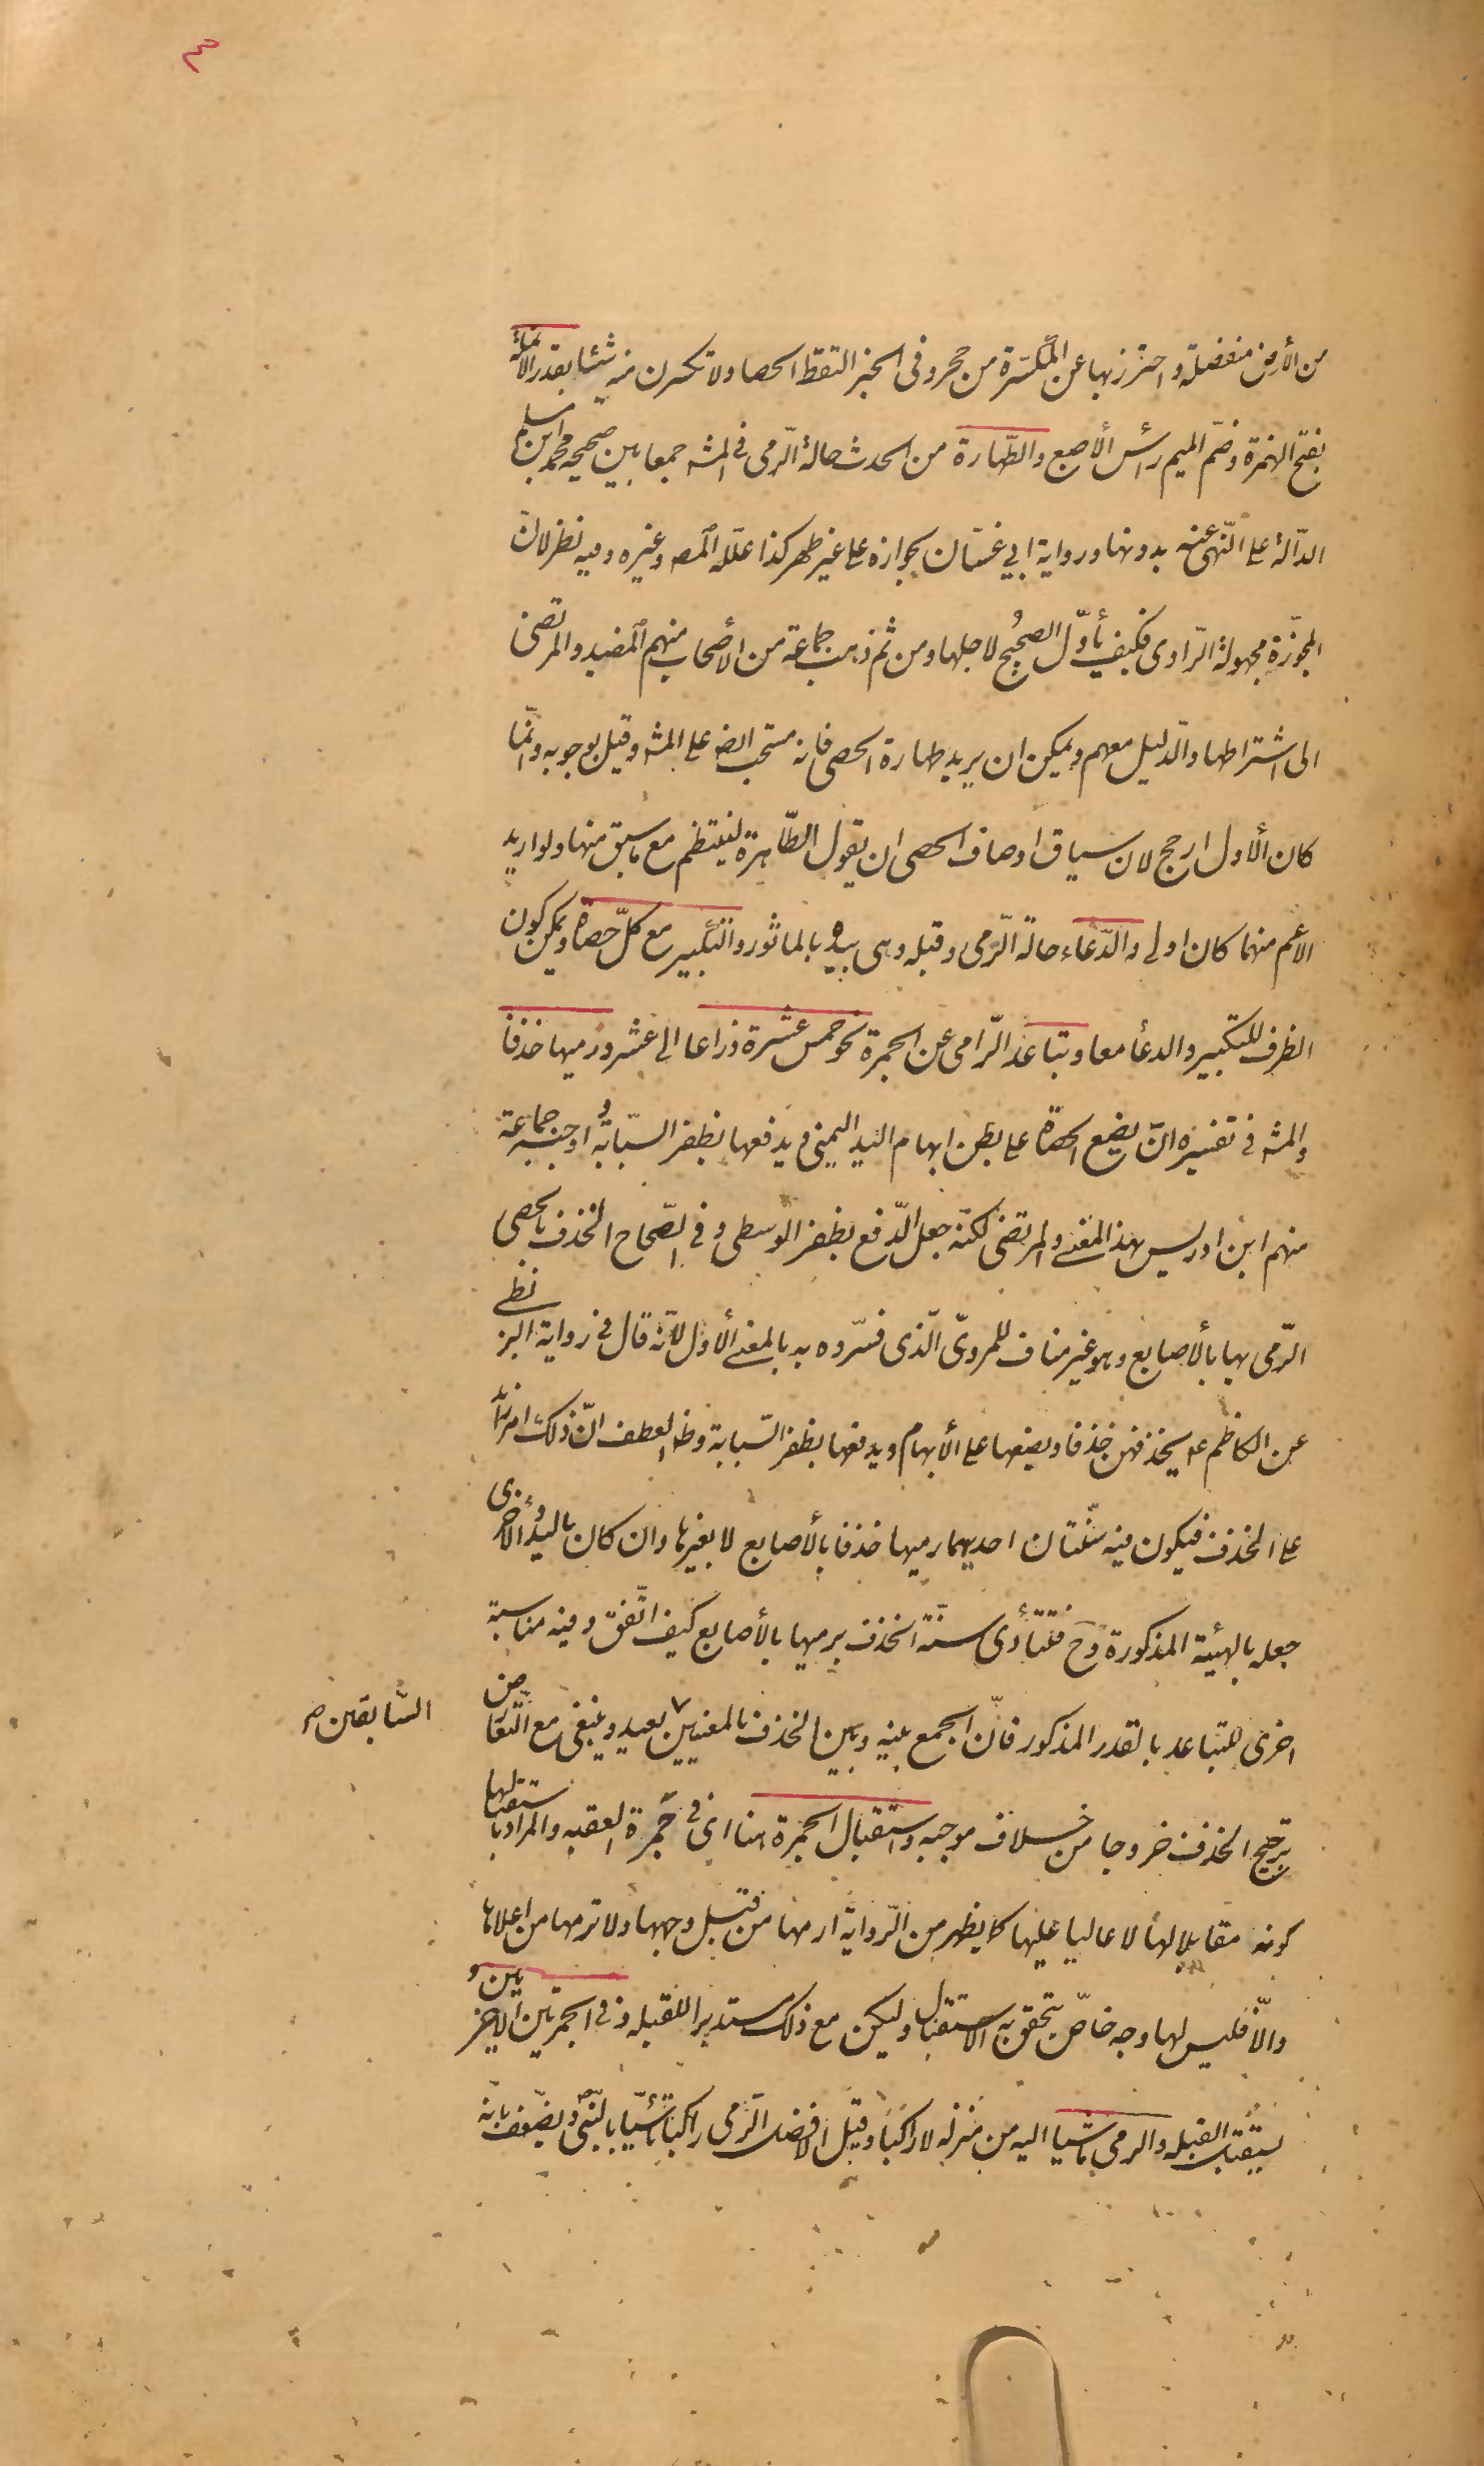 ٣
من الأرض منفصلة و احترز بها عن المكسّرة من حجر و فى الخبر التقط الحصا ولا تكسرن منه شيئا بقدر الأنملة
بفتح الهمزة وضمّ الميم رأس الأصبع والطّهارة من الحدث حالة الرّمى فى المشه جمعا بين صحيحة محمد ابن مسلم
الدّالة على النّهى عنه بدونها ورواية ابي غسّان بجوازه على غير طهر كذا علّله المصـ وغيره وفيه نظر لانّ
المجوّزة مجهولة الرّاوى فكيف يأوّل الصحيح لاجلها ومن ثم ذهب جماعة من الأصحاب منهم المفيد و المرتضى
الى اشتراطها والدّليل معهم ويمكن ان يريد طهارة الحصى فانه مستحب ايضـ على المشه وقيل بوجوبه وانّما
كان الأول ارجح لان سياق اوصاف الحصى ان يقول الطّاهرة لينتظم مع ما سبق منها ولو اريد
الاعم منهما كان اولى والدّعاء حالة الرّمى وقبله وهى بيده بالماثور والتّكبير مع كلّ حصاة ويمكن كون
الظرف للتكبير والدعأ معا و تباعد الرّامى عن الجمرة نحو خمس عشرة ذراعا الى عشرو رميها خذفا
والمشه فى تفسيره ان يضع الحصاة على بطن ابهام اليد اليمنى ويدفعها بظفر السّبابة واوجبه جماعة
منهم ابن ادريس بهذا المعنى والمرتضى لكنّه جعل الدّفع بظفر الوسطى وفى الصّحاح الخذف بالحصى
الرّمى بها بالأصابع وهو غير مناف للمروىّ الّذى فسّروه به بالمعنى الأول لأنّه قال فى رواية البزنطى
عن الكاظم عـ يخذفهن خذفا ويضعها على الأبهام ويدفعها بظفر السّبابة وظـ العطف انّ ذلك امر زائد
على الخذف فيكون فيه سنّتان احديهما رميها خذفا بالأصابع لا بغيرها وان كان باليد والأخرى
جعله بالهيئة المذكورة وح فتتأدى سنّة الخذف برميها بالأصابع كيف اتّفق وفيه مناسبة
اخرى للتباعد بالقدر المذكور فانّ الجمع بينه وبين الخذف بالمعنيين ٧ بعيد وينبغى مع التّعارض
السّابقين صـ
ترجيح الخذف خروجا من خلاف موجبه واستقبال الجمرة هنا اى فى جمرة العقبه والمراد باستقبالها
كونه مقابلا لها لا عاليا عليها كما يظهر من الرّواية ارمها من قبل وجهها ولا ترمها من اعلاها
والّا فليس لها وجه خاصّ يتحقق به الاستقبال وليكن مع ذلك مستدبرا للقبله وفى الجمرتين الاخريين و
يستقبل القبله والرمى ماشيا اليه من منزله لا راكبا وقيل الافضل الرّمى راكبا تأسّيا بالنّبى ص ويضعّف بانّه